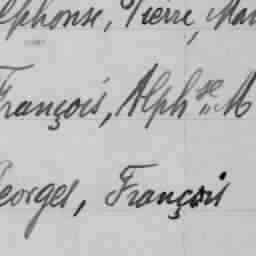 Alphonse, Pierre, Mar
François, Alph.se M
Georges, François